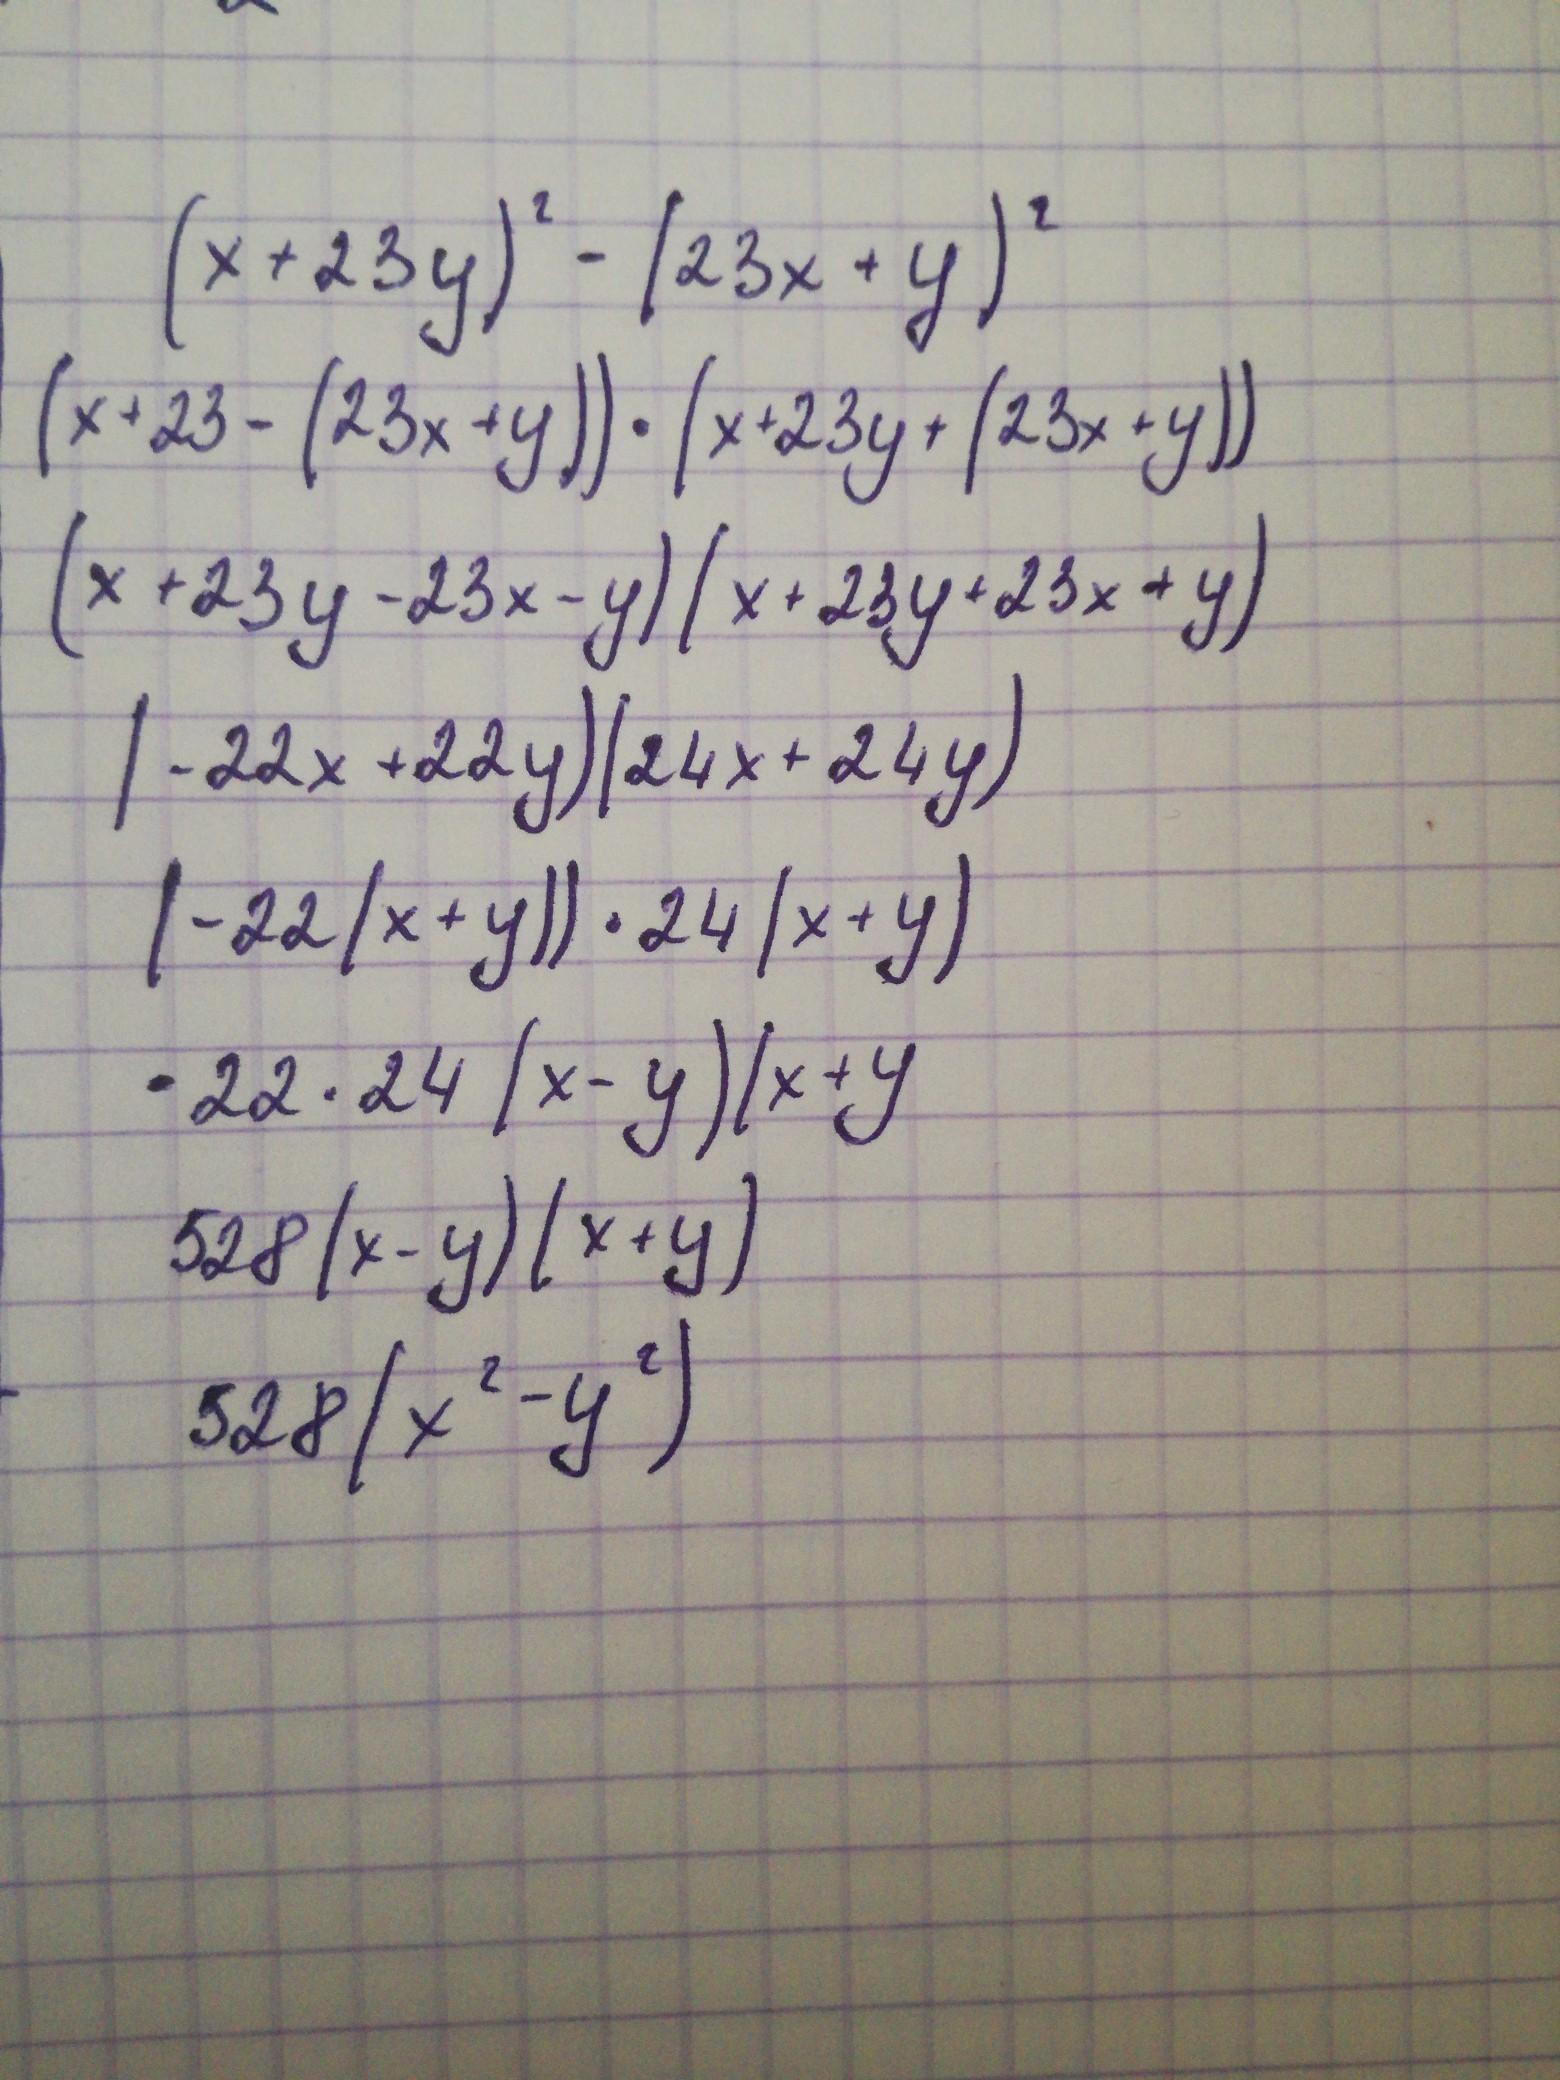 (x+23y)² - (23x+y)²
(x+23-(23x+y))·(x+23y+(23x+y))
(x+23y-23x-y)(x+23y+23x+y)
(-22x+22y)(24x+24y)
(-22(x+y))·24(x+y)
-22·24(x-y)(x+y
528(x-y)(x+y)
528(x²-y²)